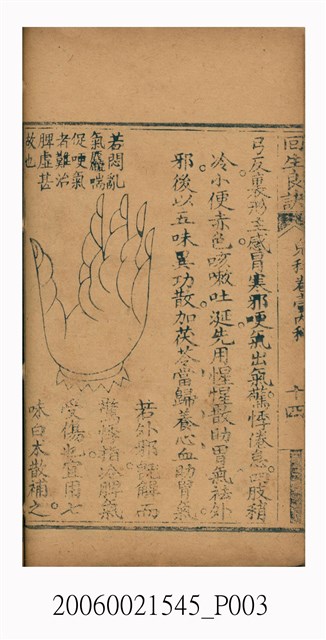 回生良訣
兒科卷壹內科
十四
弓反裏形主感冒寒邪哽氣出氣驚悸倦怠四肢稍
冷小便赤色咳嗽吐涎先用惺惺散助胃氣祛外
邪後以五味異功散加茯苓當歸養心血助胃氣
若外邪既解而
驚悸指冷脾氣
受傷也宜用七
味白术散補之
若悶亂
氣麤喘
促哽氣
者難治
脾虛甚
故也
20060021545_P003